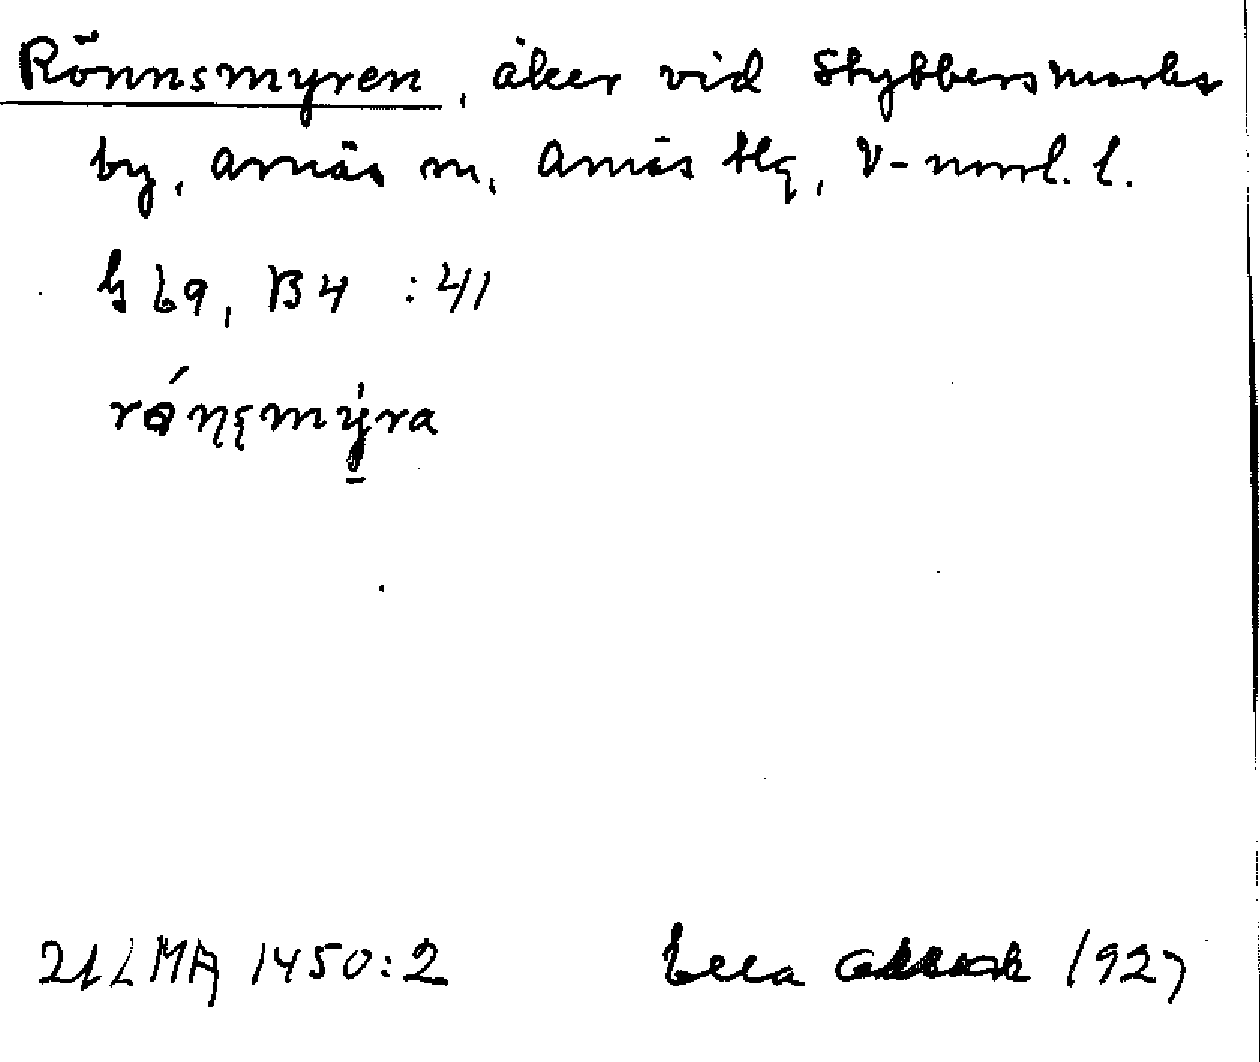 Rönnsmyren, åker vid Stybbersmarks
by, Arnäs sn, Arnäs tlg, V-norrl. l.
G 69, B4 : 41
rǿn̦ʂmy̌ra
ULMA 1450:2 Ella 1927